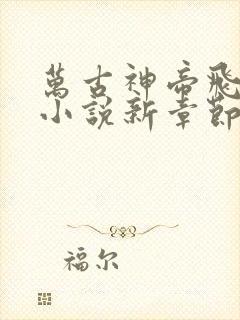 萬古神帝飛
小說新章節
福尔